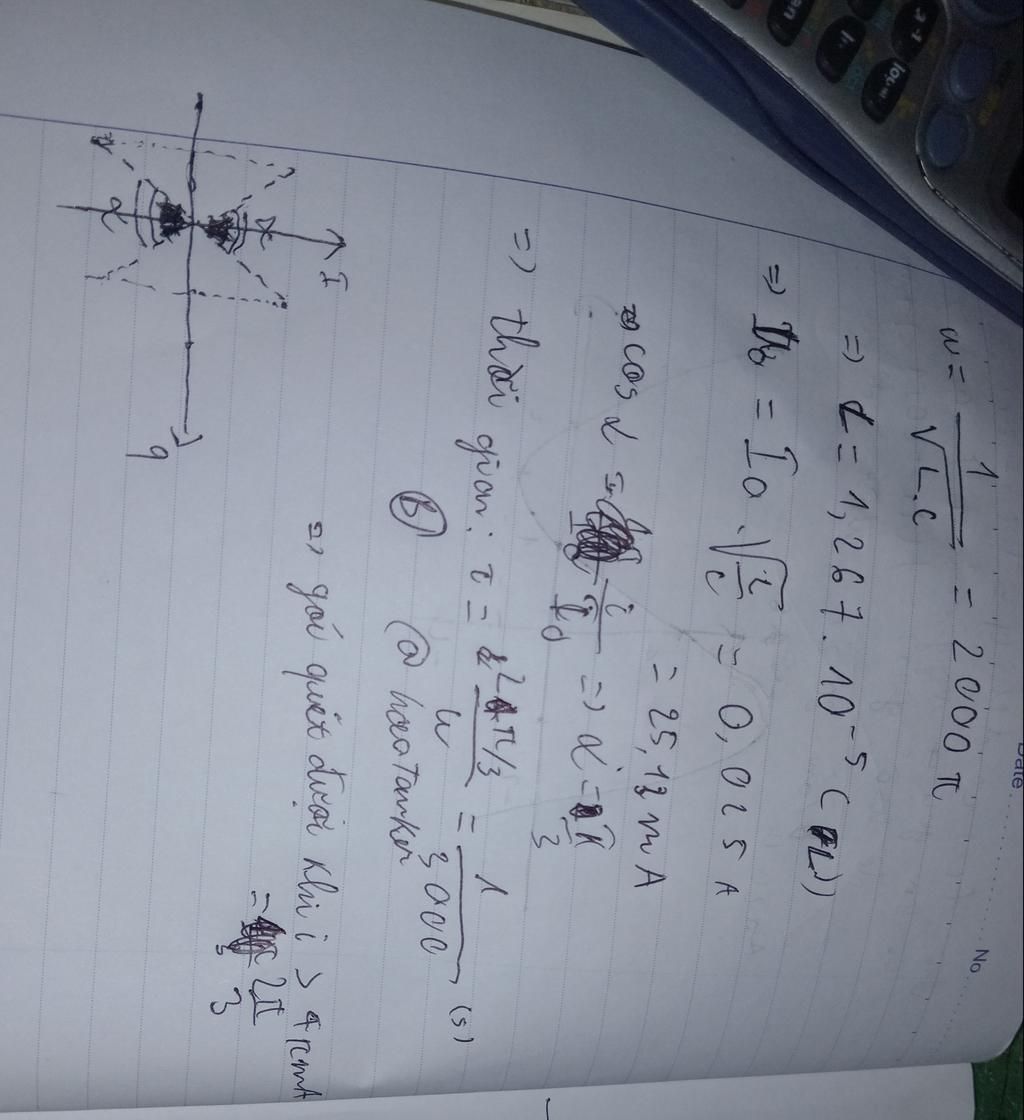 Date
No
w = 1/√L.C = 2000 π
=> L = 1,267 . 10⁻⁵ (L)
=> I₀ . √L/C = 0,025 A
= 25,13 mA
=> cos α = i/I₀ => α = π/3
=> thời gian: τ = 2π/3 / w = 1/3000 (s)
(B) @ hoatanker
=> góc quét được khi i > 4π mA
= 2π/3
I
q
α
α